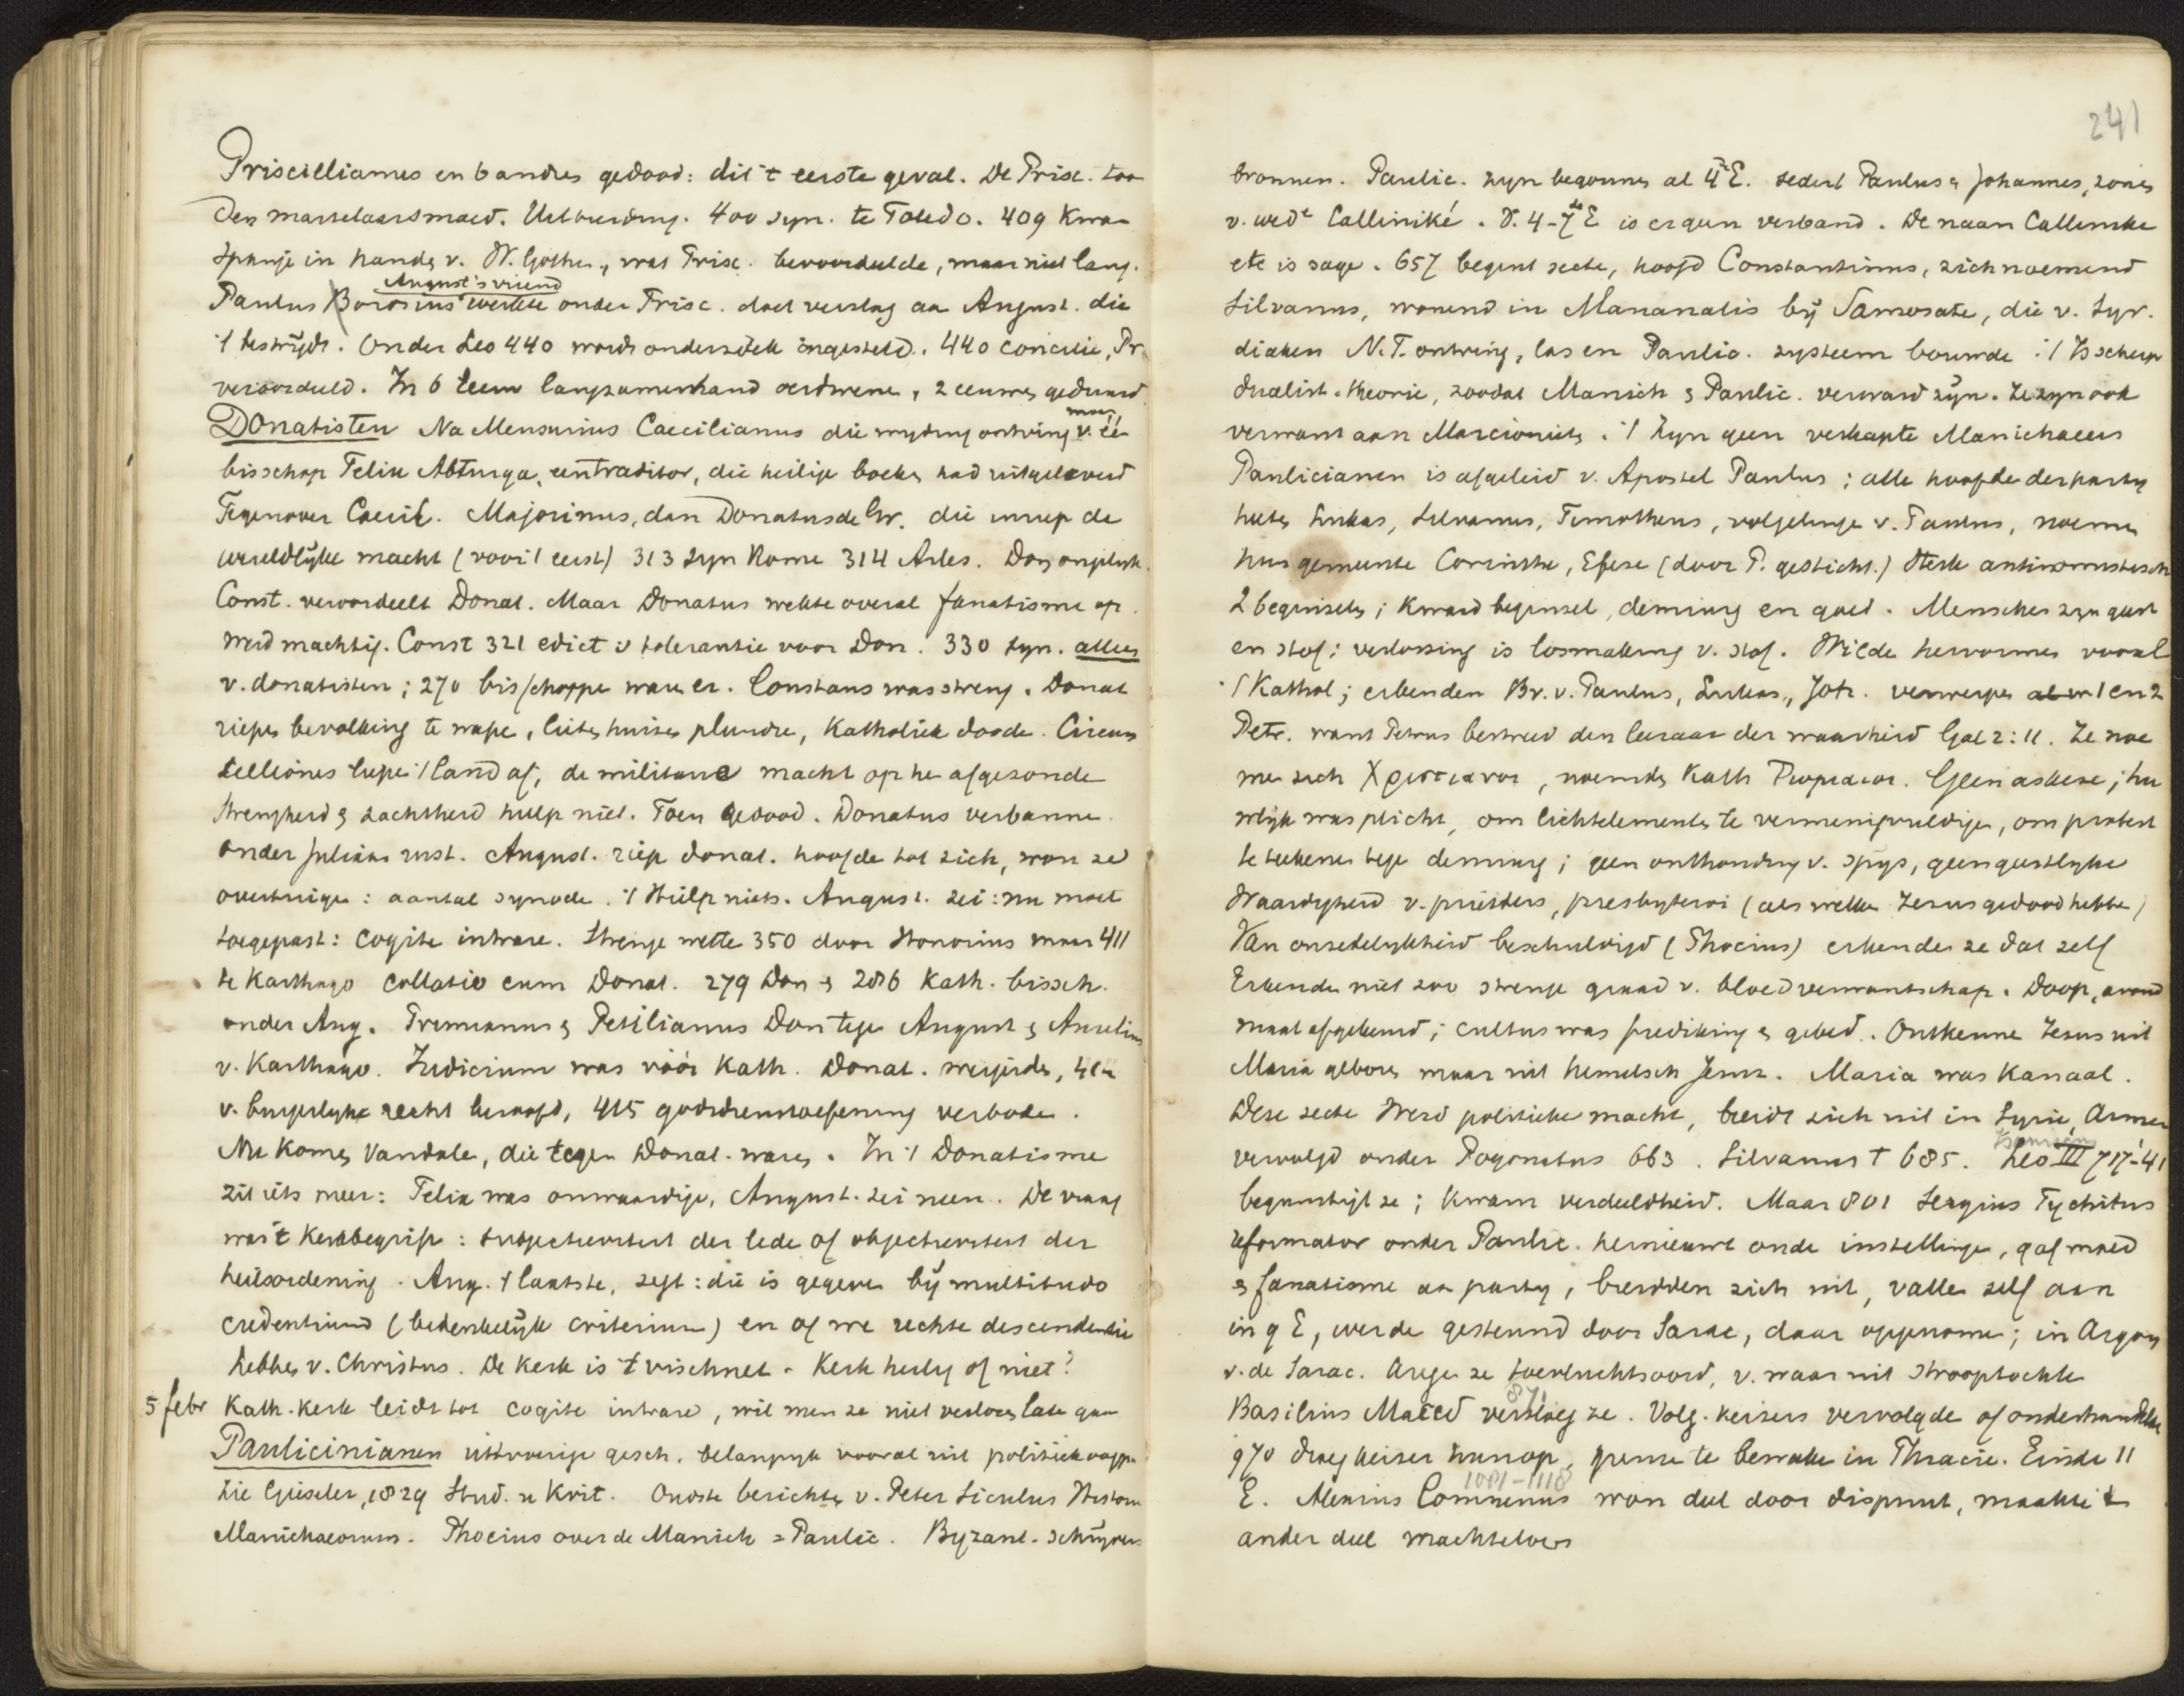 Priscillianus en 6 andres gedood: dit 't eerste geval. De Prisc. too
den martelaarsmoed. Uitbreiding. 400 syn. te Toledo. 409 kwam
Spanje in handen v. W. Gothen, wat Prisc. bevoordeelde, maar niet lang.
August's vriend
Paulus Borosius werkte onder Prisc. doet verslag aan August. die
't bestrijdt. Onder Leo 440 wordt onderzoek ingesteld. 440 concilie, Pr.
veroordeeld. In 6 eeuw langzamerhand verdwenen, 2 eeuwen geduurd.
Donatisten Na Mensurius Caecilianus die wijding ontving v. één
bisschop Felix Abtunga, een traditor, die heilige boeken had uitgeleverd
Tegenover Caecil. Majorinus, dan Donatus de Gr. die inriep de
wereldlijke macht (voor 't eerst) 313 Syn Rome 314 Arles. Don ongelijk.
Const. veroordeelt Donat. Maar Donatus wekte overal fanatisme op.
werd machtig. Const 321 edict v tolerantie voor Don. 330 syn. alleen
v. donatisten; 270 bisschoppen waren er. Constans was streng. Donat
riepen bevolking te wapen, lieten huizen plunderen, Katholiek dooden. Circum
celliones liepen 't land af, de militaire macht op hen afgezonden
strengheid & zachtheid hielp niet. Toen gedood. Donatus verbannen.
Onder Julianus rust. August. riep donat. hoofden tot zich, won ze
overtuigen: aantal synoden. 't Hielp niets. August. zei: nu moet
toegepast: cogite intrare. Strenge wetten 350 door Honorius maar 411
te Karthago collatio cum Donat. 279 Don & 286 Kath. bissch.
onder Aug. Primianus & Petilianus Don tegen August & Aurelius
v. Karthago. Judicium was vóór Kath. Donat. weigerden, 414
v. burgerlijke recht beroofd, 415 godsdienstoefening verboden.
Nu komen Vandalen, die tegen Donat. waren. In 't Donatisme
zit iets meer: Felix was onwaardige, August. zei neen. De vraag
was 't kerkbegrip: subjectiviteit der leden of objectiviteit der
heilsordening. Aug. 't laatste, zegt: die is gegeven bij multitudo
credentium (bedenkelijk criterium) en of we rechte descendentie
hebben v. Christus. De kerk is 't vischnet. Kerk heilig of niet?
5 febr Kath. kerk leidt tot cogite intrare, wil men ze niet verloren laten gaan
Paulicinianen uitvoerige gesch. belangrijk vooral uit politiek oogpu
Zie Gieseler, 1829 Stud. u Krit. Oudste berichten v. Peter Siculus Histori
Manichaeorum. Phocius over de Manich = Paulic. Byzant. schrijvers
241
bronnen. Paulic. zijn begonnen al 4de E. sedert Paulus & Johannes, zonen
v. wede Calliniké. V. 4-7de E is er geen verband. De naam Callinike
etc is sage. 657 begint secte, hoofd Constantinus, zich noemend
Silvanus, wonend in Mananalis bij Samosate, die v. Syr.
diaken N.T. ontving, las en Paulic. systeem bouwde. 't Is scherp
dualist. theorie, zoodat Manich & Paulic. verward zijn. Ze zijn ook
verwant aan Marcionists. 't Zijn geen verkapte Manichaeers
Paulicianen is afgeleid v. Apostel Paulus; alle hoofden der partij
heeten Lukas, Silvanus, Timotheus, volgelingen v. Paulus, noemen
hun gemeente Corinthe, Efese (door P. gesticht.) Sterk antinomistisch
2 beginselen; kwaad beginsel, demiurg en goed. Menschen zijn geest
en stof; verlossing is losmaking v. stof. Wilde hervormen vooral
't Kathol; erkenden Br. v. Paulus, Lukas, Joh. verwerpen al w 1 en 2
Petr. want Petrus bestreed den leeraar der waarheid Gal 2:11. Ze noe
men zich Χριστιανοι, noemden Kath Ρωμαιοι. Geen askese; hu
welijk was plicht, om lichtelementen te vermenigvuldigen, om protest
te teekenen tegen demiurg; geen onthouding v. spijs, geen geestelyke
Waardigheid v. priesters, presbyteroi (als welke Jezus gedood hebben)
Van onzedelykheid beschuldigd (Phocius) erkenden ze dat zelf
Erkenden niet zoo strenge graad v. bloedverwantschap. Doop, avond
maal afgekeurd; cultus was prediking & gebed. Ontkennen Jezus uit
Maria geboren maar uit hemelsch Jeruz. Maria was kanaal.
Deze secte werd politieke macht, breidt zich uit in Syrië, Armen
Isauriens
vervolgd onder Pogonatus 663. Silvanus † 685. Leo III 717-41
begunstigt ze; kwam verdeeldheid. Maar 801 Sergius Tychicus
reformator onder Paulic. hernieuwt oude instellingen, gaf moed
& fanatisme aan partij, breidden zich uit, vallen zelf aan
in 9 E, werden gesteund door Sarac, daar opgenomen; in Argaum
v. de Sarac. kregen ze toevluchtsoord, v. waar uit strooptochten
871
Basilius Maced versloeg ze. Volg. keizers vervolgden of onderhandelden
970 droeg keizer hun op, grens te bewaken in Thracie. Einde 11
1081-1118
E. Alexius Comnenus won deel door dispuut, maakte 't
ander deel machteloos